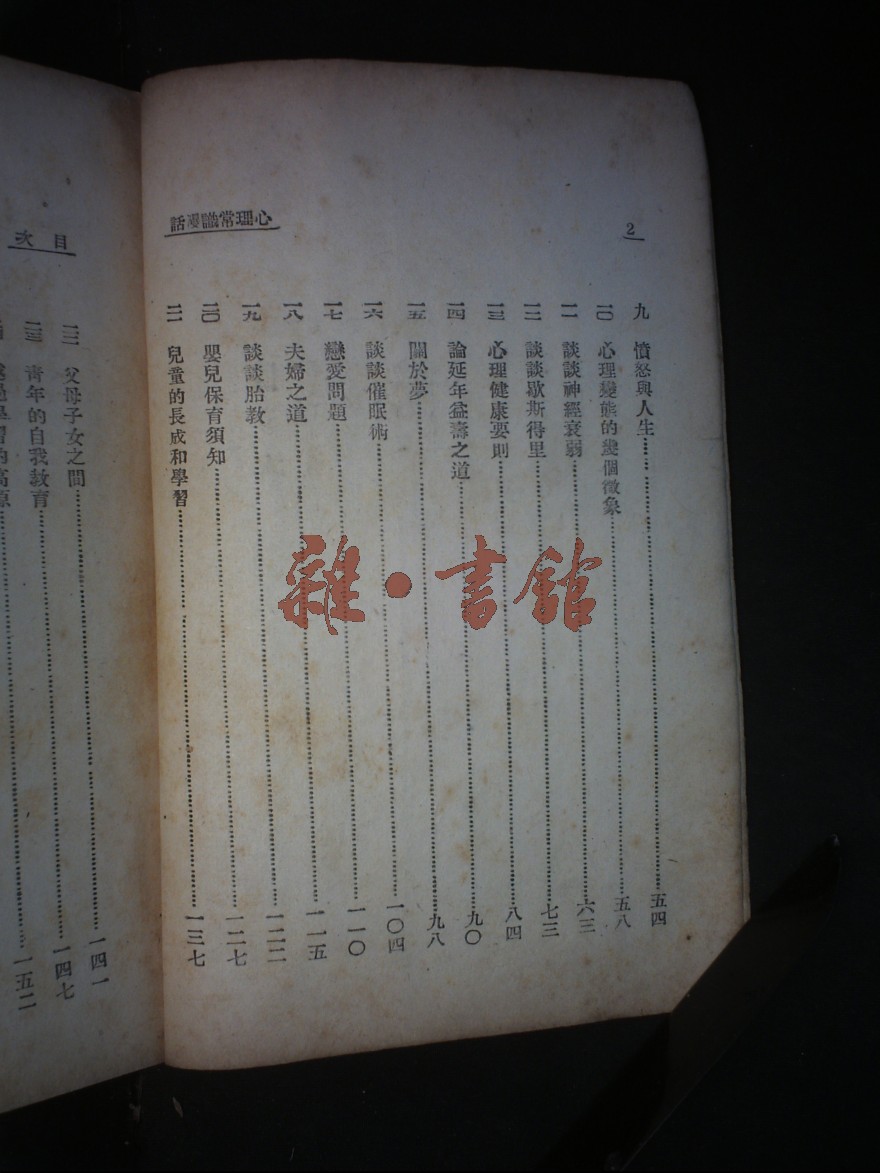 心理常識漫話
2
九 憤怒與人生……五四
一〇 心理變態的幾個徵象……五八
一一 談談神經衰弱……六三
一二 談談歇斯得里……七三
一三 心理健康要則……八四
一四 論延年益壽之道……九〇
一五 關於夢……九八
一六 談談催眠術……一〇四
一七 戀愛問題……一一〇
一八 夫婦之道……一一五
一九 談談胎教……一二二
二〇 嬰兒保育須知……一二七
二一 兒童的長成和學習……一三七
目次
二二 父母子女之間……一四一
二三 青年的自我教育……一四七
學習的高原……一五二
雜·書館